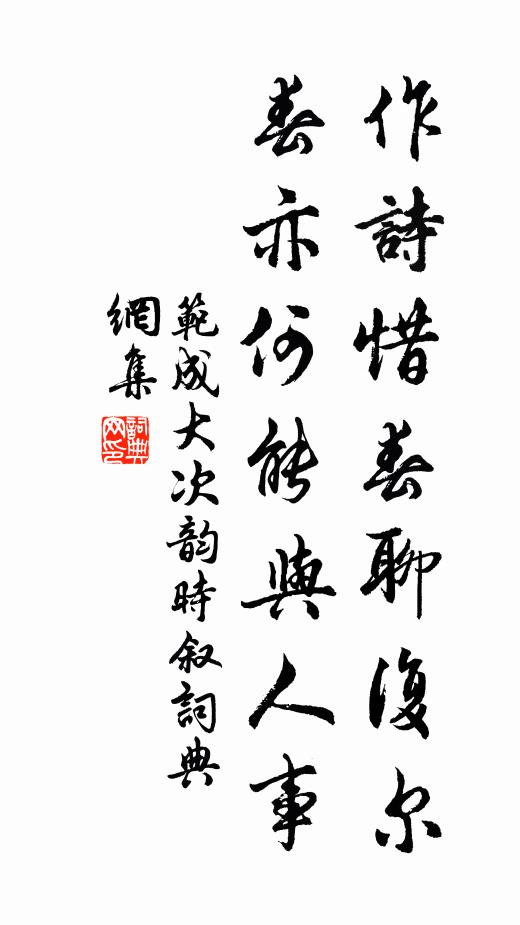 作詩惜春聊復尔
春亦何能與人事
範成大次韵時叙詞典
網集
詞典網印